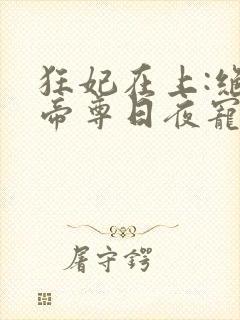 狂妃在上:絕
帝尊日夜寵
屠守鍔